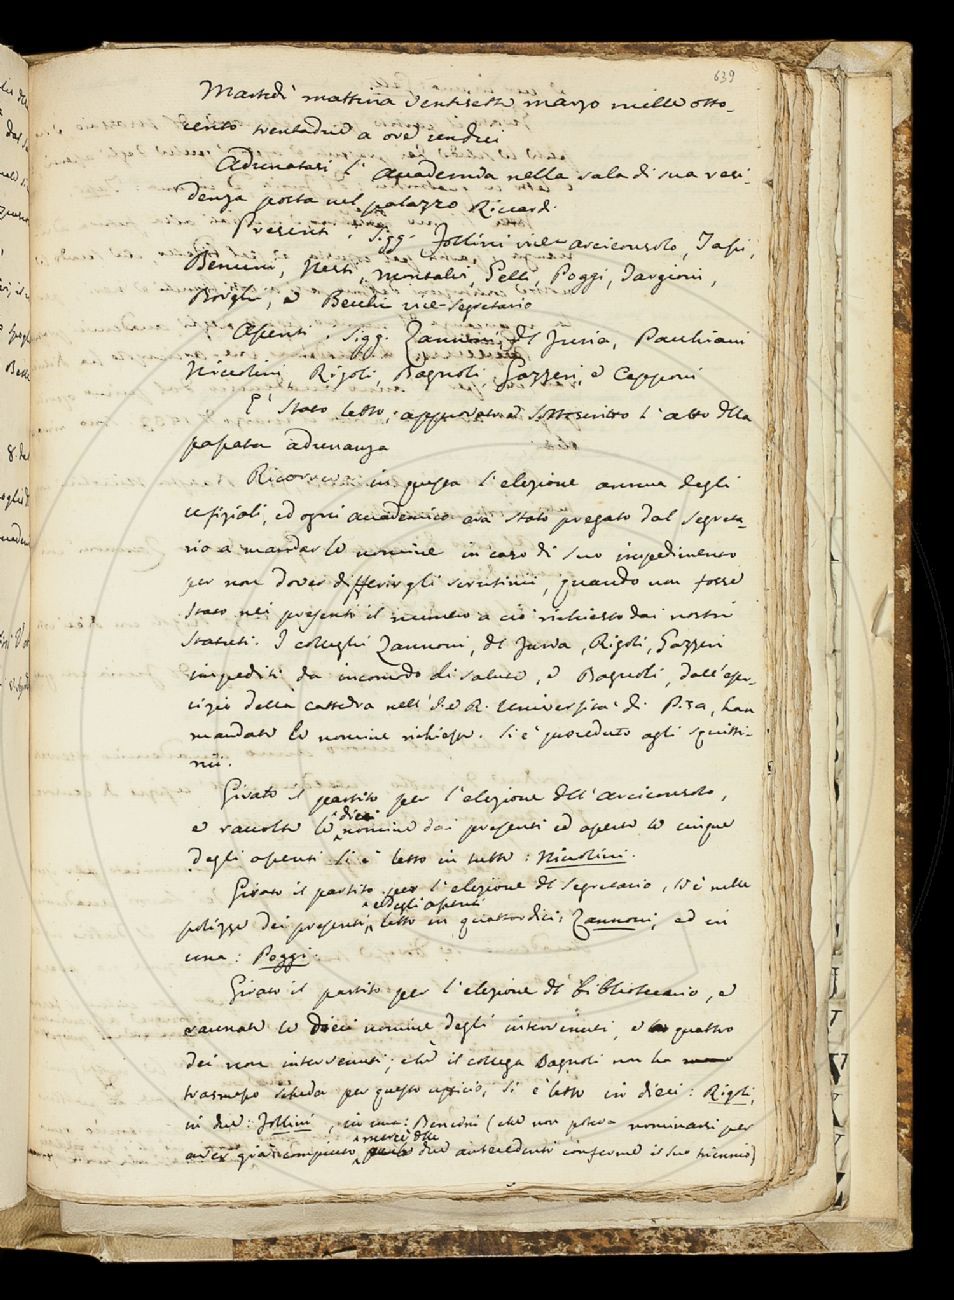 639
Martedì mattina ventisette marzo mille otto-
cento trentadue a ore undici
Adunatasi l'Accademia nella sala di sua resi-
denza posta nel palazzo Riccardi.
Presenti i Sigg. Follini vice-arciconsolo, Tassi,
Bencini, Nesti, Montalvi, Gelli, Poggi, Targioni,
Borghi, e Becchi vice-segretario
Assenti i Sigg. Zannoni, del Furia, Pacchiani
Niccolini, Rigoli, Bagnoli, Gazzeri, e Capponi
E' stato letto, approvato ed sottoscritto l'atto della
passata adunanza
Ricorreva in questa l'elezione annua degli
ufiziali, ed ogni accademico era stato pregato dal Segreta-
rio a mandar le nomine in caso di suo impedimento
per non dover differir gli scrutinii, quando non fosse
stato nei presenti il numero a ciò richiesto dai nostri
statuti. I colleghi Zannoni, del Furia, Rigoli, Gazzeri
impediti da incomodo di salute, e Bagnoli, dall'eser-
cizio della cattedra nell'I. e R. Università di Pisa, han
mandato le nomine richieste. Si è proceduto agli squitti-
nii.
Girato il partito per l'elezione dell'arciconsolo,
e raccolte le dieci nomine dai presenti ed aperte le cinque
degli assenti si è letto in tutte: Niccolini.
Girato il partito per l'elezione del Segretario, si è nelle
polizze dei presenti, e degli assenti letto in quattordici: Zannoni, ed in
una: Poggi.
Girato il partito per l'elezione del bibliotecario, e
raunate le dieci nomine degli intervenuti, e quattro
dei non intervenuti; chè il collega Bagnoli non ha
trasmesso scheda per questo uficio, si è letto in dieci: Rigoli,
in due: Follini, in una: Bencini (che non poteva nominarsi per
aver già compiuto nelle due antecedenti conferme il suo triennio)